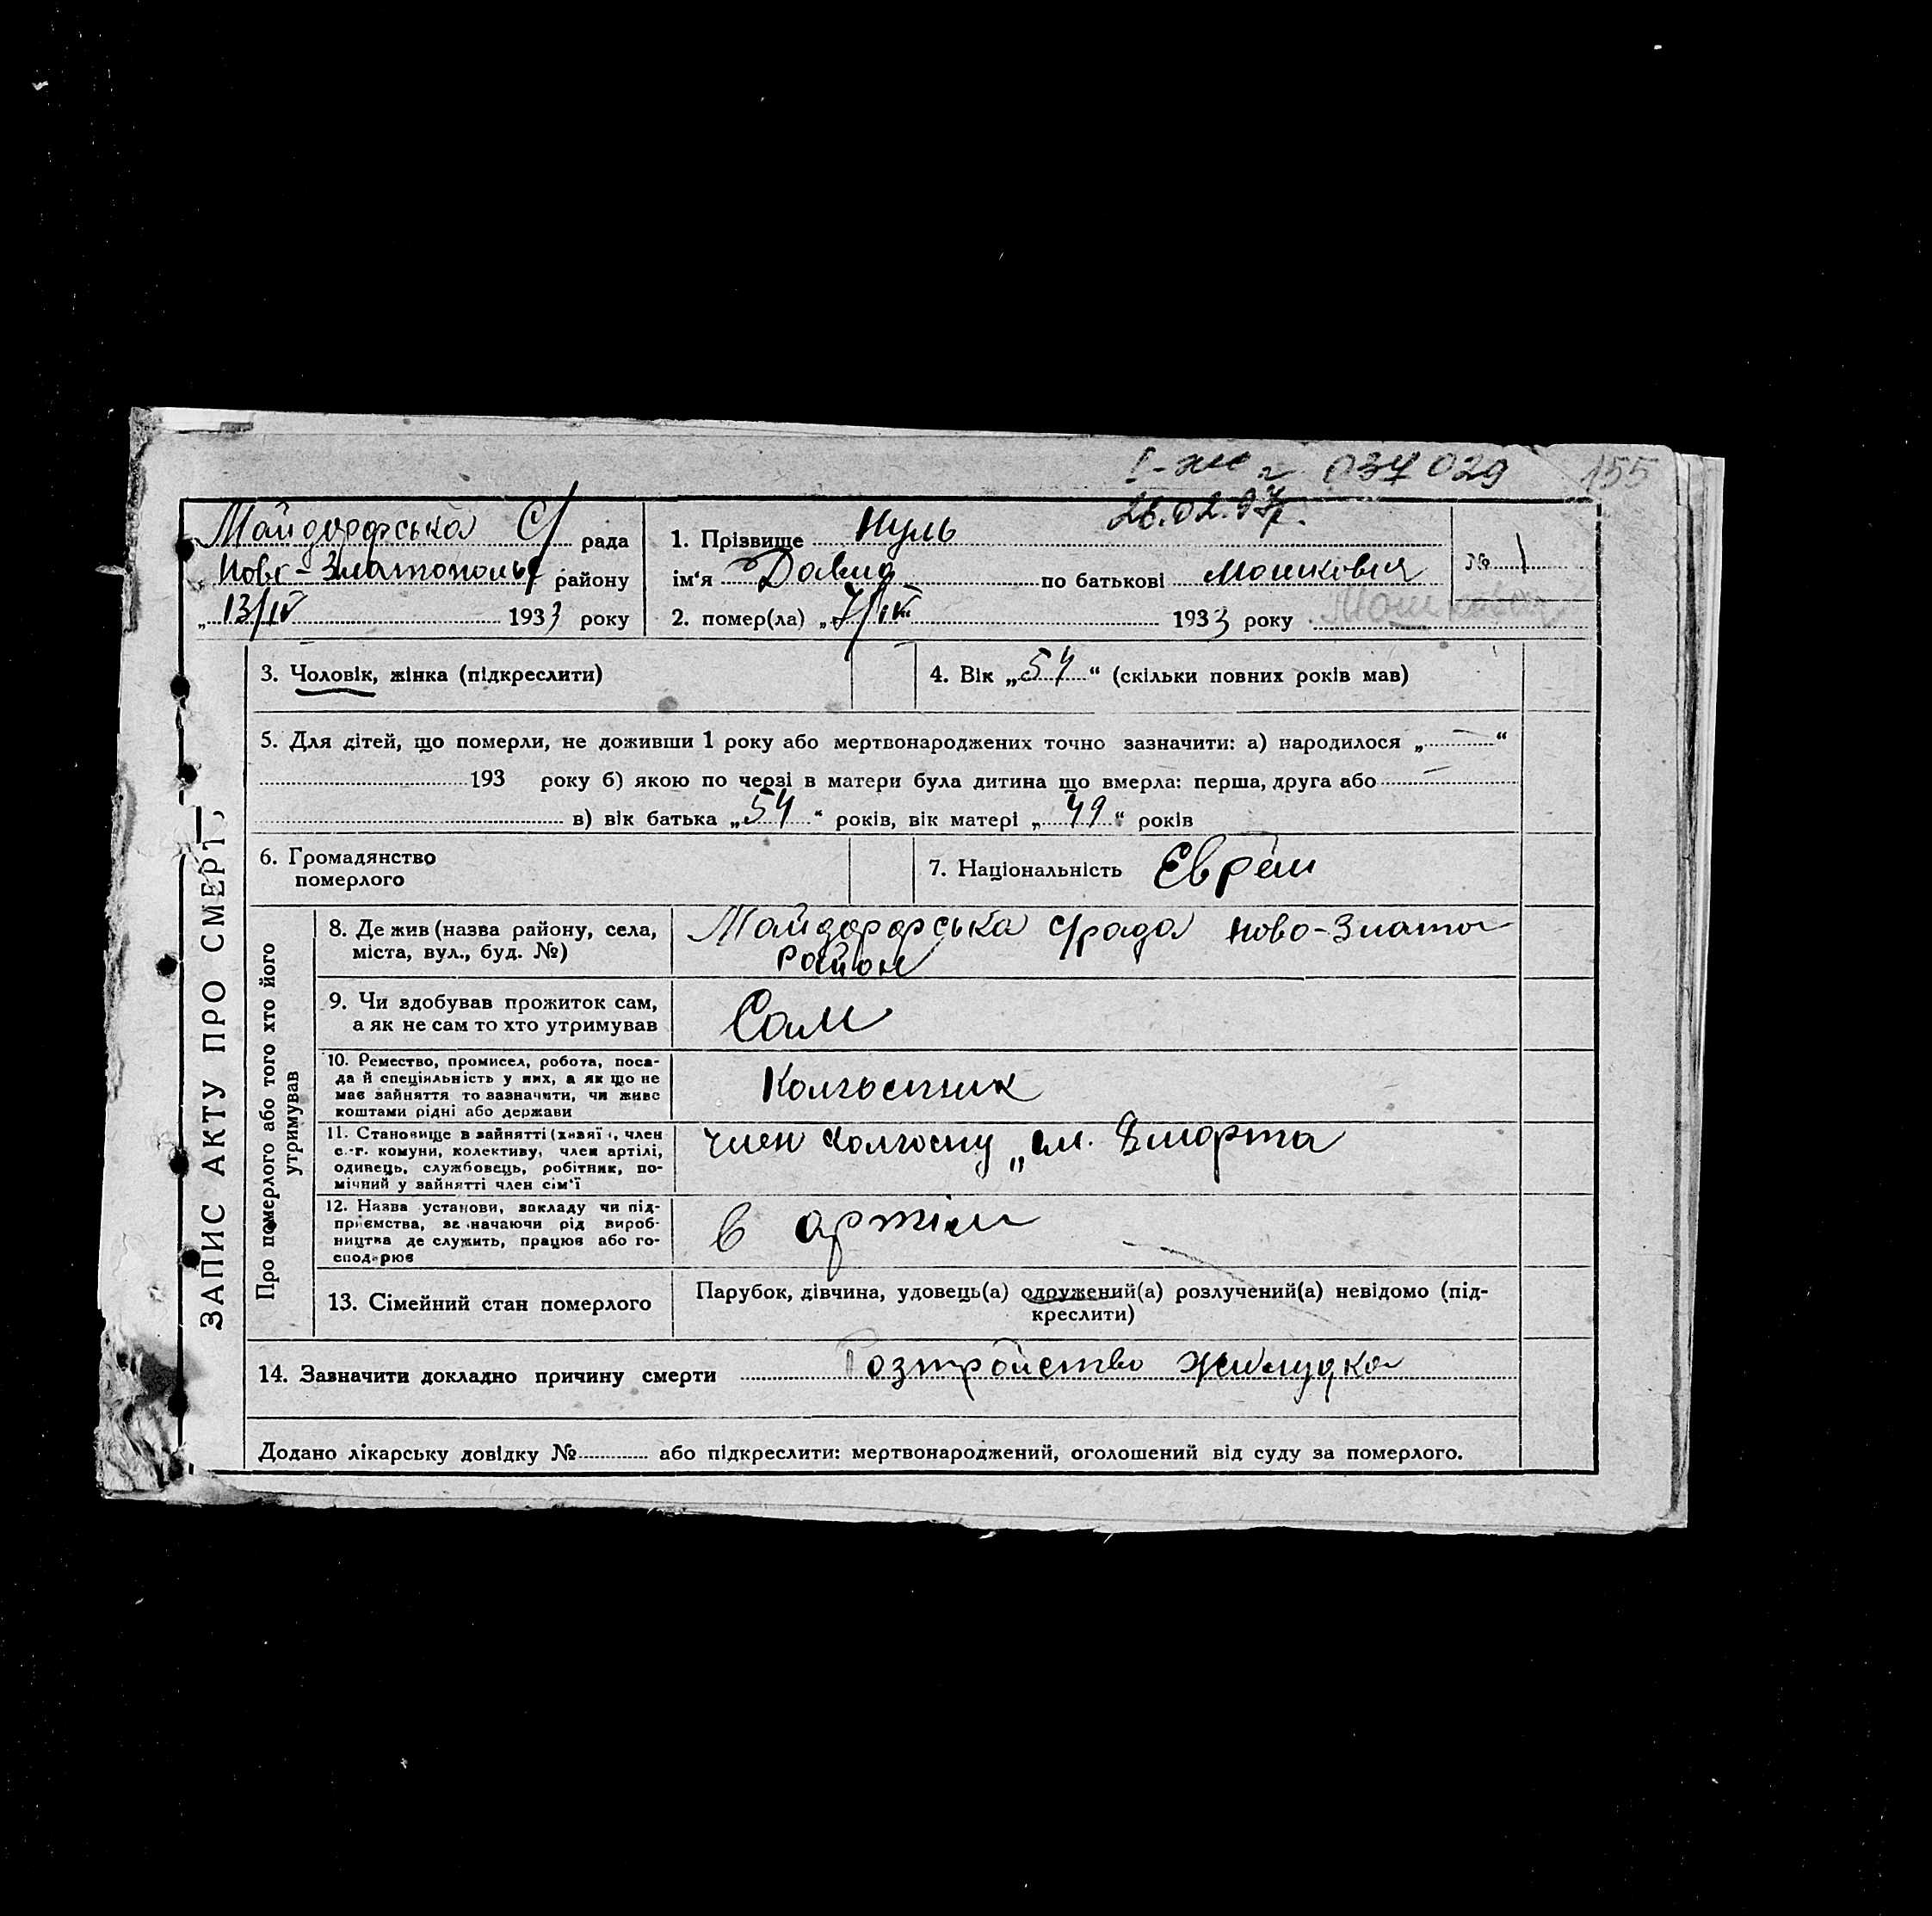 I-жи 2 037 029 155
26.02.97г.
Майдорфська С/ рада
Ново-Златополь району
„13/IV 1933 року
1. Прізвище Нуль
ім'я Давид по батькові Мошкович
№ 1
2. помер(ла) „7/IV“ 1933 року Мошкович
3. Чоловік, жінка (підкреслити)
4. Вік „54“ (скільки повних років мав)
5. Для дітей, що померли, не доживши 1 року або мертвонароджених точно зазначити: а) народилося „—“
193 року б) якою по черзі в матери була дитина що вмерла: перша, друга або —
в) вік батька „54“ років, вік матері „49“ років
6. Громадянство
померлого
7. Національність Еврей
ЗАПИС АКТУ ПРО СМЕРТЬ
Про померлого або того хто його
утримував
8. Де жив (назва району, села,
міста, вул., буд. №)
Майдорфська с/рада Ново-Злато
Район
9. Чи здобував прожиток сам,
а як не сам то хто утримував
Сам
10. Ремество, промисел, робота, поса-
да й спеціяльність у них, а як що не
має зайняття то зазначити, чи живе
коштами рідні або держави
Колгоспник
11. Становище в зайнятті (хазяїн, член
с.-г. комуни, колективу, член артілі,
одинець, службовець, робітник, по-
мічний у зайнятті член сім'ї
член колгоспу „им. 8марта
12. Назва установи, закладу чи під-
приємства, зазначаючи рід вироб-
ництва де служить, працює або го-
сподарює
в артіли
13. Сімейний стан померлого
Парубок, дівчина, удовець(а) одружений(а) розлучений(а) невідомо (під-
креслити)
14. Зазначити докладно причину смерти Розтройство жилудка
Додано лікарську довідку № або підкреслити: мертвонароджений, оголошений від суду за померлого.